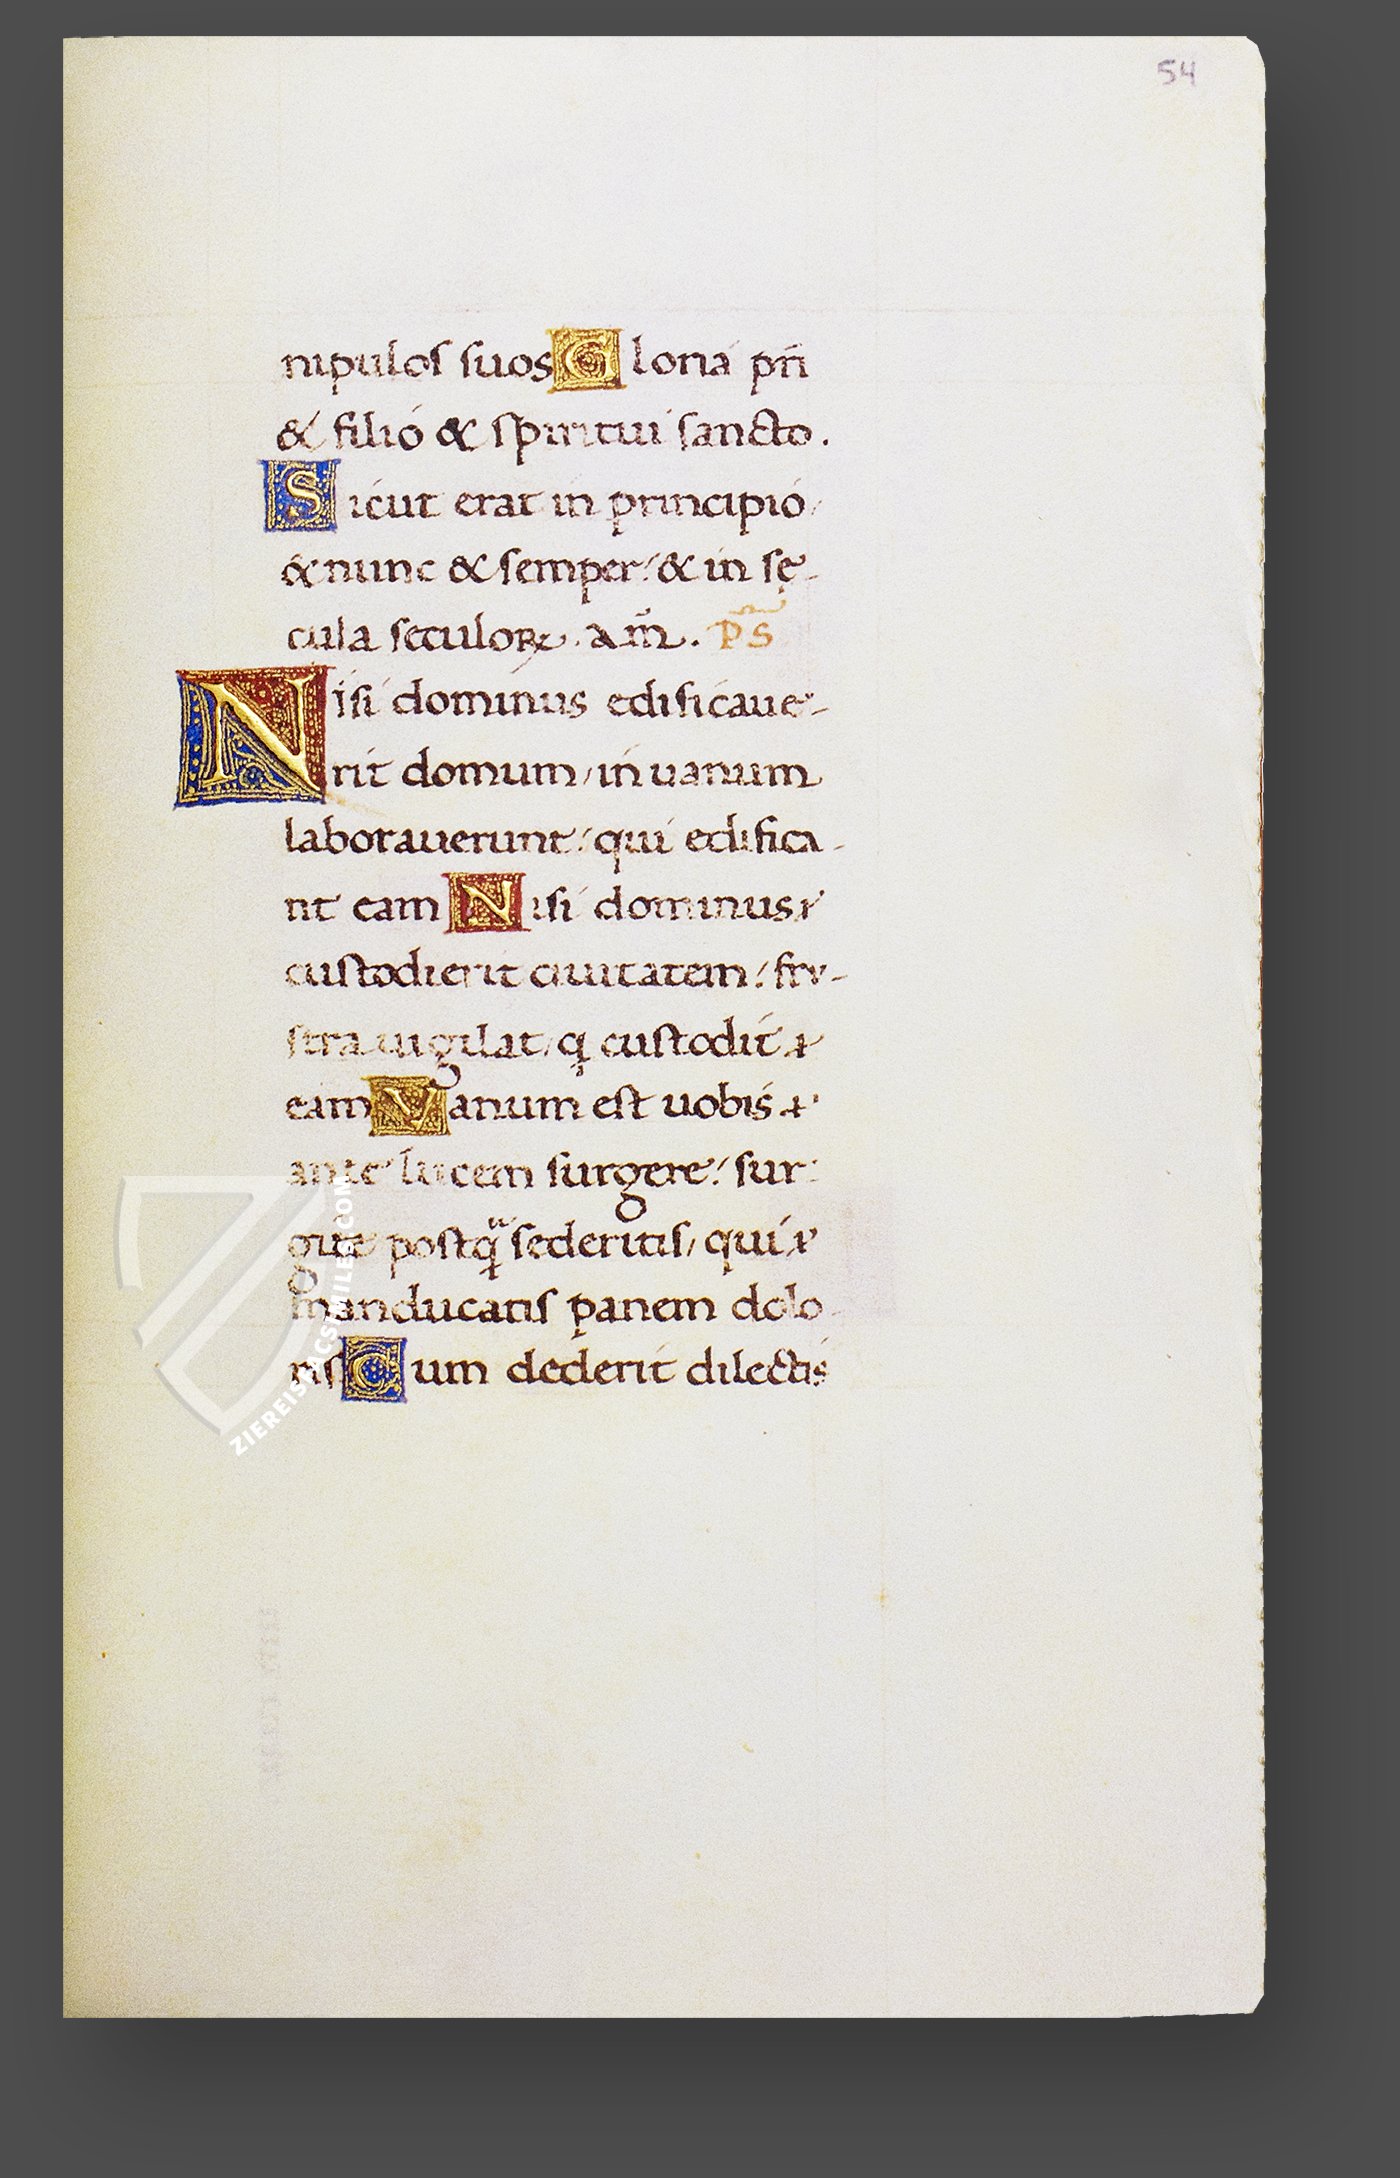 54
nipulos suos Gloria pr̄i
& filio & spiritui sancto.
Sicut erat in principio/
& nunc & semper:/ & in sę-
cula seculoꝝ. am̄. PS̄
Nisi dominus edificaue-
rit domum/ in uanum
laborauerunt:/ qui edifica-
nt eam Nisi dominus
custodierit ciuitatem:/ frv-
stra uigilat/ q custodit
eam Vanum est uobis
ante lucem surgere:/ sur:
gite postqᵃ sederitis/ qui
manducatis panem dolo-
ris Cum dederit dilectis
ZIEREIS FACSIMILES.COM